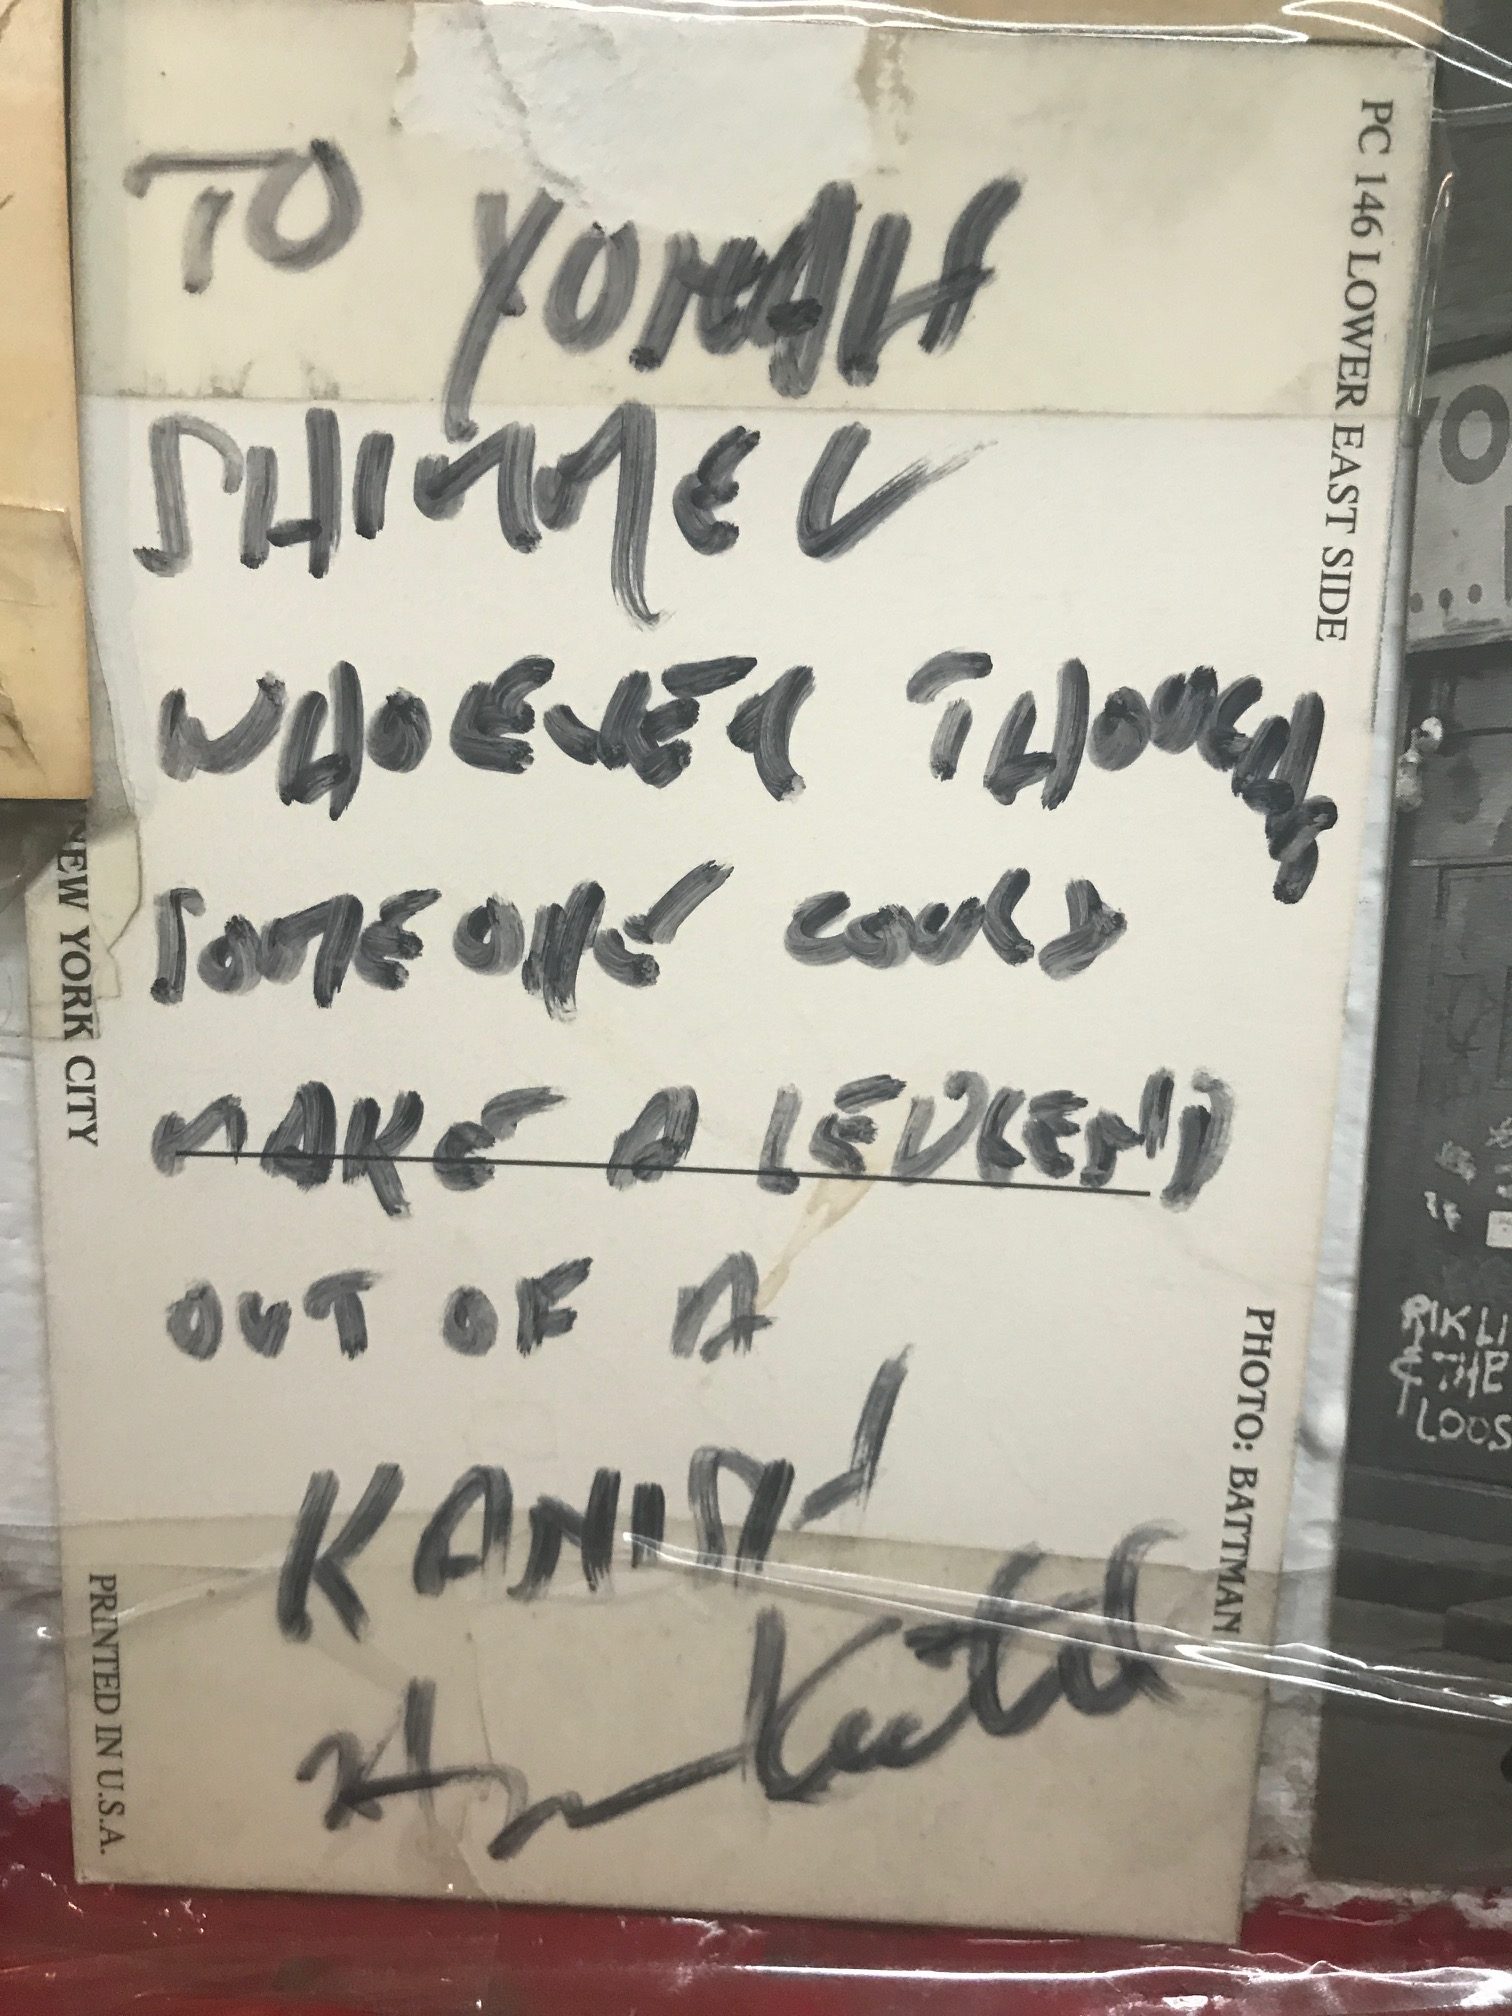 PC 146 LOWER EAST SIDE
TO YONAH
SHIMMEL
WHOEVER THOUGHT
SOMEONE COULD
MAKE A LEDGEND
OUT OF A
NEW YORK CITY
PHOTO: BATTMAN
PRINTED IN U.S.A.
RIK LI
& THE
LOOS